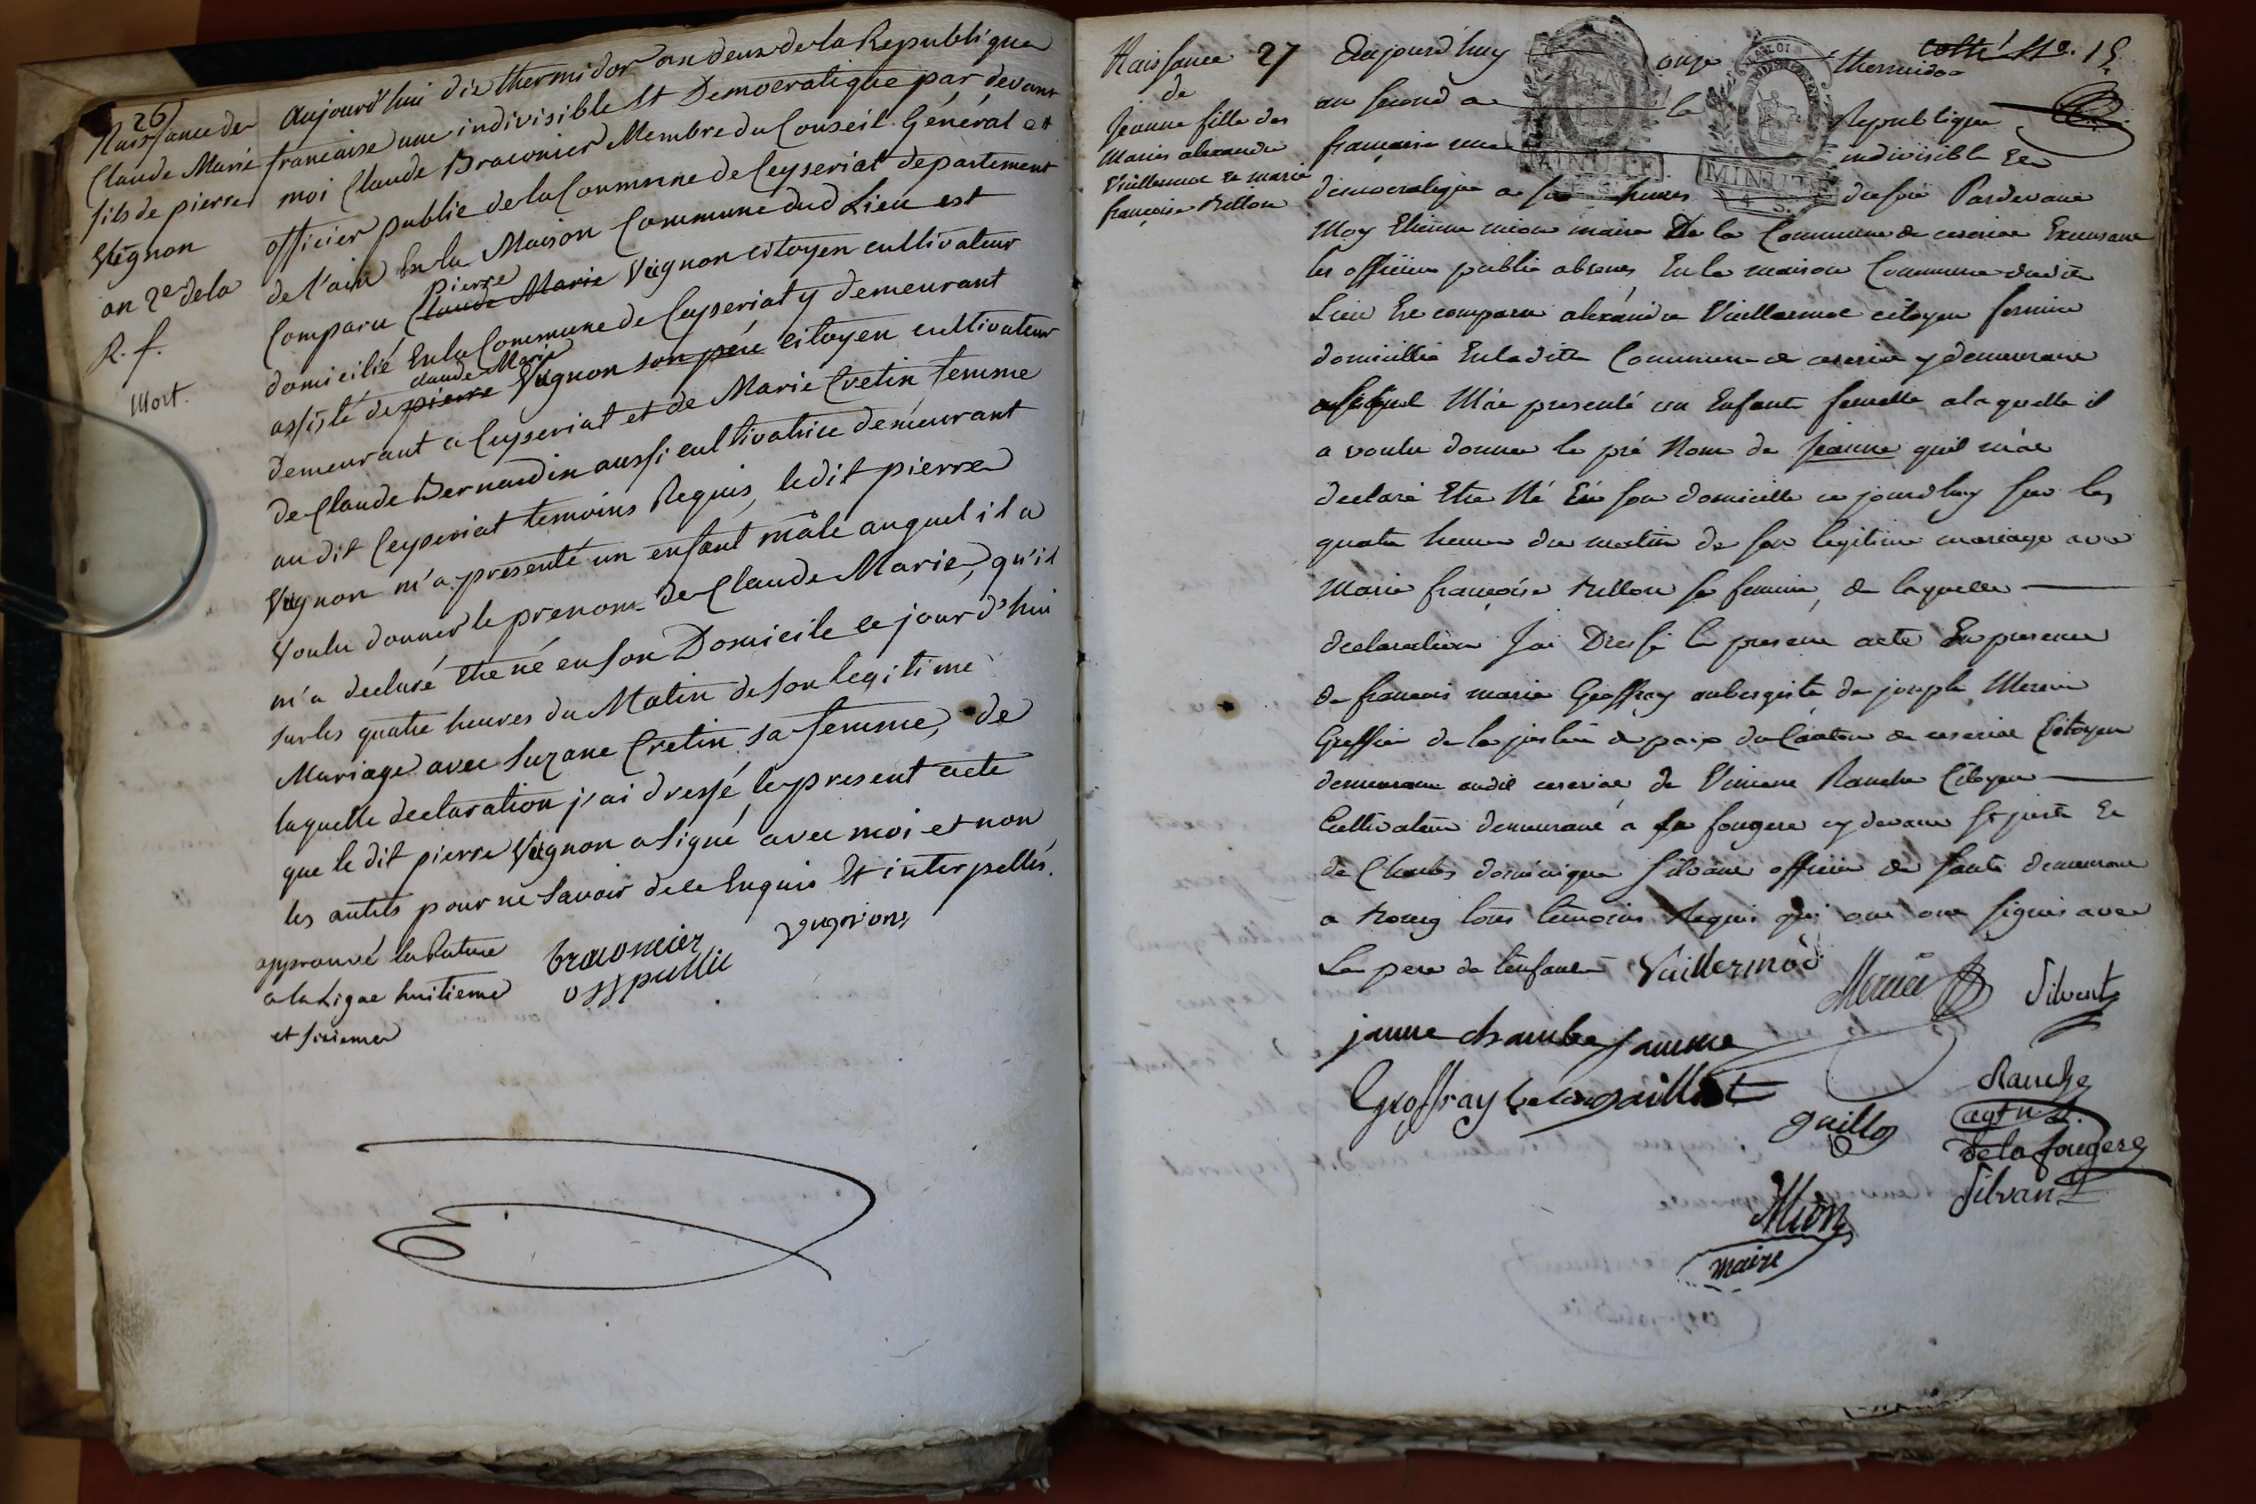 26
Naissance de
Claude Marie
fils de pierre
Vugnon
an 2e de la
R. f.
Mort.
Aujourd'hui dix thermidor an deux de la Republique
francaise une indivisible et Democratique par devant
moi Claude Braconier Membre du Conseil Général et
officier public de la Commune de Ceyseriat departement
de l'ain En la Maison Commune dud Lieu est
pierre
Comparu Claude Marie Vugnon citoyen cultivateur
domicilié En la Commune de Ceyseriat y demeurant
claude Marie
assisté de pierre Vugnon son pere citoyen cultivateur
demeurant a Ceyseriat et de Marie Cretin femme
de Claude Bernardin aussi cultivatrice demeurant
au dit Ceyseriat temoins Requis, ledit pierre
Vugnon m'a presenté un enfant mâle auquel il a
voulu donner le prenom de Claude Marie, qu'il
m'a declaré être né en son Domicile ce jour d'hui
sur les quatre heures du Matin de son legitime
Mariage avec Suzane Cretin sa femme, de
laquelle declaration j'ai dressé le present acte
que le dit pierre Vugnon a signé avec moi et non
les autres pour ne savoir de ce Enquis Et interpellés.
approuvé la Rature
a la Ligne huitieme
et sixieme
braconier
off public
vugnions
Naissance 27
de
Jeanne fille des
Maries alexandre
Vuillermoz et marie
françoise Rillon
cotté 11e. 15
Aujourd'huy onze thermidor
an second de la Republique
francaise une indivisible et
democratique a six heures du soir Pardevant
Moy Etienne mion maire De la Commune de ceseriat Exersant
les officier public absent, En la maison Commune dudit
Lieu Est comparu alexandre Vuillermoz citoyen fermier
domicillié En ladite Commune de ceseriat y demeurant
Lequel M'a presenté un Enfant femelle a laquelle il
a voulu donner le pré Nom de jeanne quil m'a
declaré Etre Né En son domicille ce jourd'huy sur les
quatre heures du matin de son legitime mariage avec
Marie françoise Rillon sa femme, de laquelle
declaration J'ai Dressé le present acte En presence
de francois marie Geoffray aubergiste de joseph Mercier
Greffier de la justice de paix du Canton de ceseriat Citoyen
demeurant audit ceseriat de Vincent Ranche Citoyen
Cultivateur demeurant a la fougere cy devant St just Et
de Charles dominique Silvant officier de santé demeurant
a Bourg tous temoins Requis qui ont signés avec
Le pere de l'enfant Vuillermoz
Mercier
Silvant
janne chambre famme
Geoffray
guillo
Ranche
agt n.
de la fougere
Silvant
Mion
maire